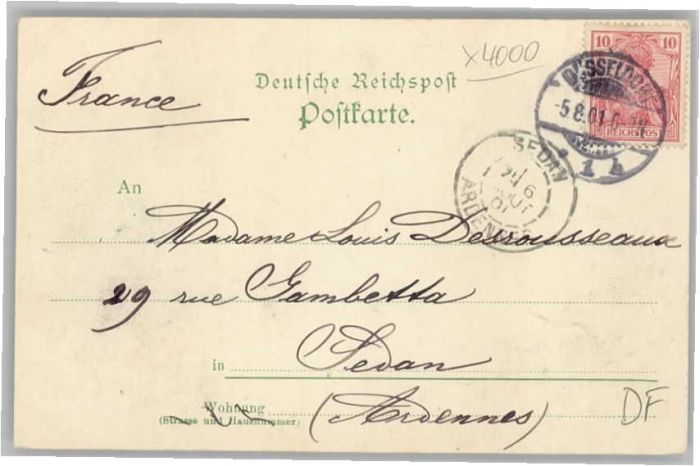 x4000
10 10
REICHSPOST
DÜSSELDORF
-5.8.01.
1 h
France
Deutsche Reichspost
Postkarte.
SEDAN
6
AOUT
01
ARDENNES
An
Madame Louis Desrousseaux
29 rue Gambetta
in Sedan
Wohnung (Ardennes)
(Strasse und Hausnummer)
DF